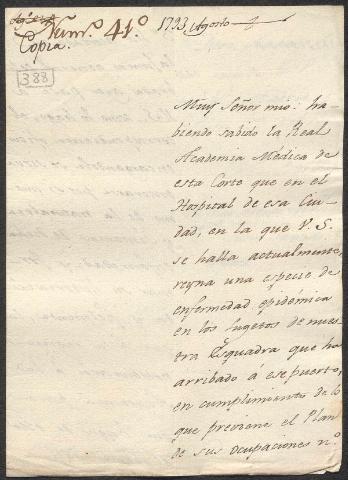 Num.º 41.º 1793 Agosto
Copia.
388
Muy Señor mio: ha-
biendo sabido la Real
Academia Médica de
esta Corte que en el
Hospital de esa Ciu-
dad, en la que V. S.
se halla actualmente,
reyna una especie de
enfermedad epidémica
en los sugetos de nues-
tra Esquadra que ha
arribado á ese puerto,
en cumplimiento de lo
que previene el Plan
de sus ocupaciones n.º